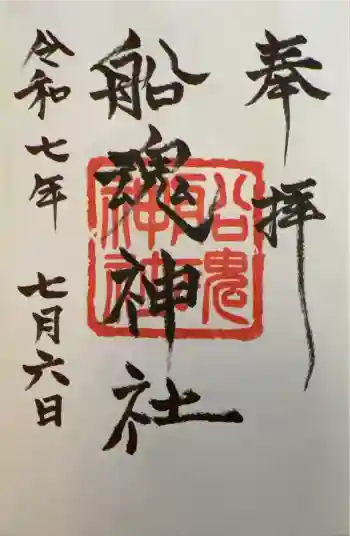 奉拝
船魂神社
令和七年 七月六日
船魂神社